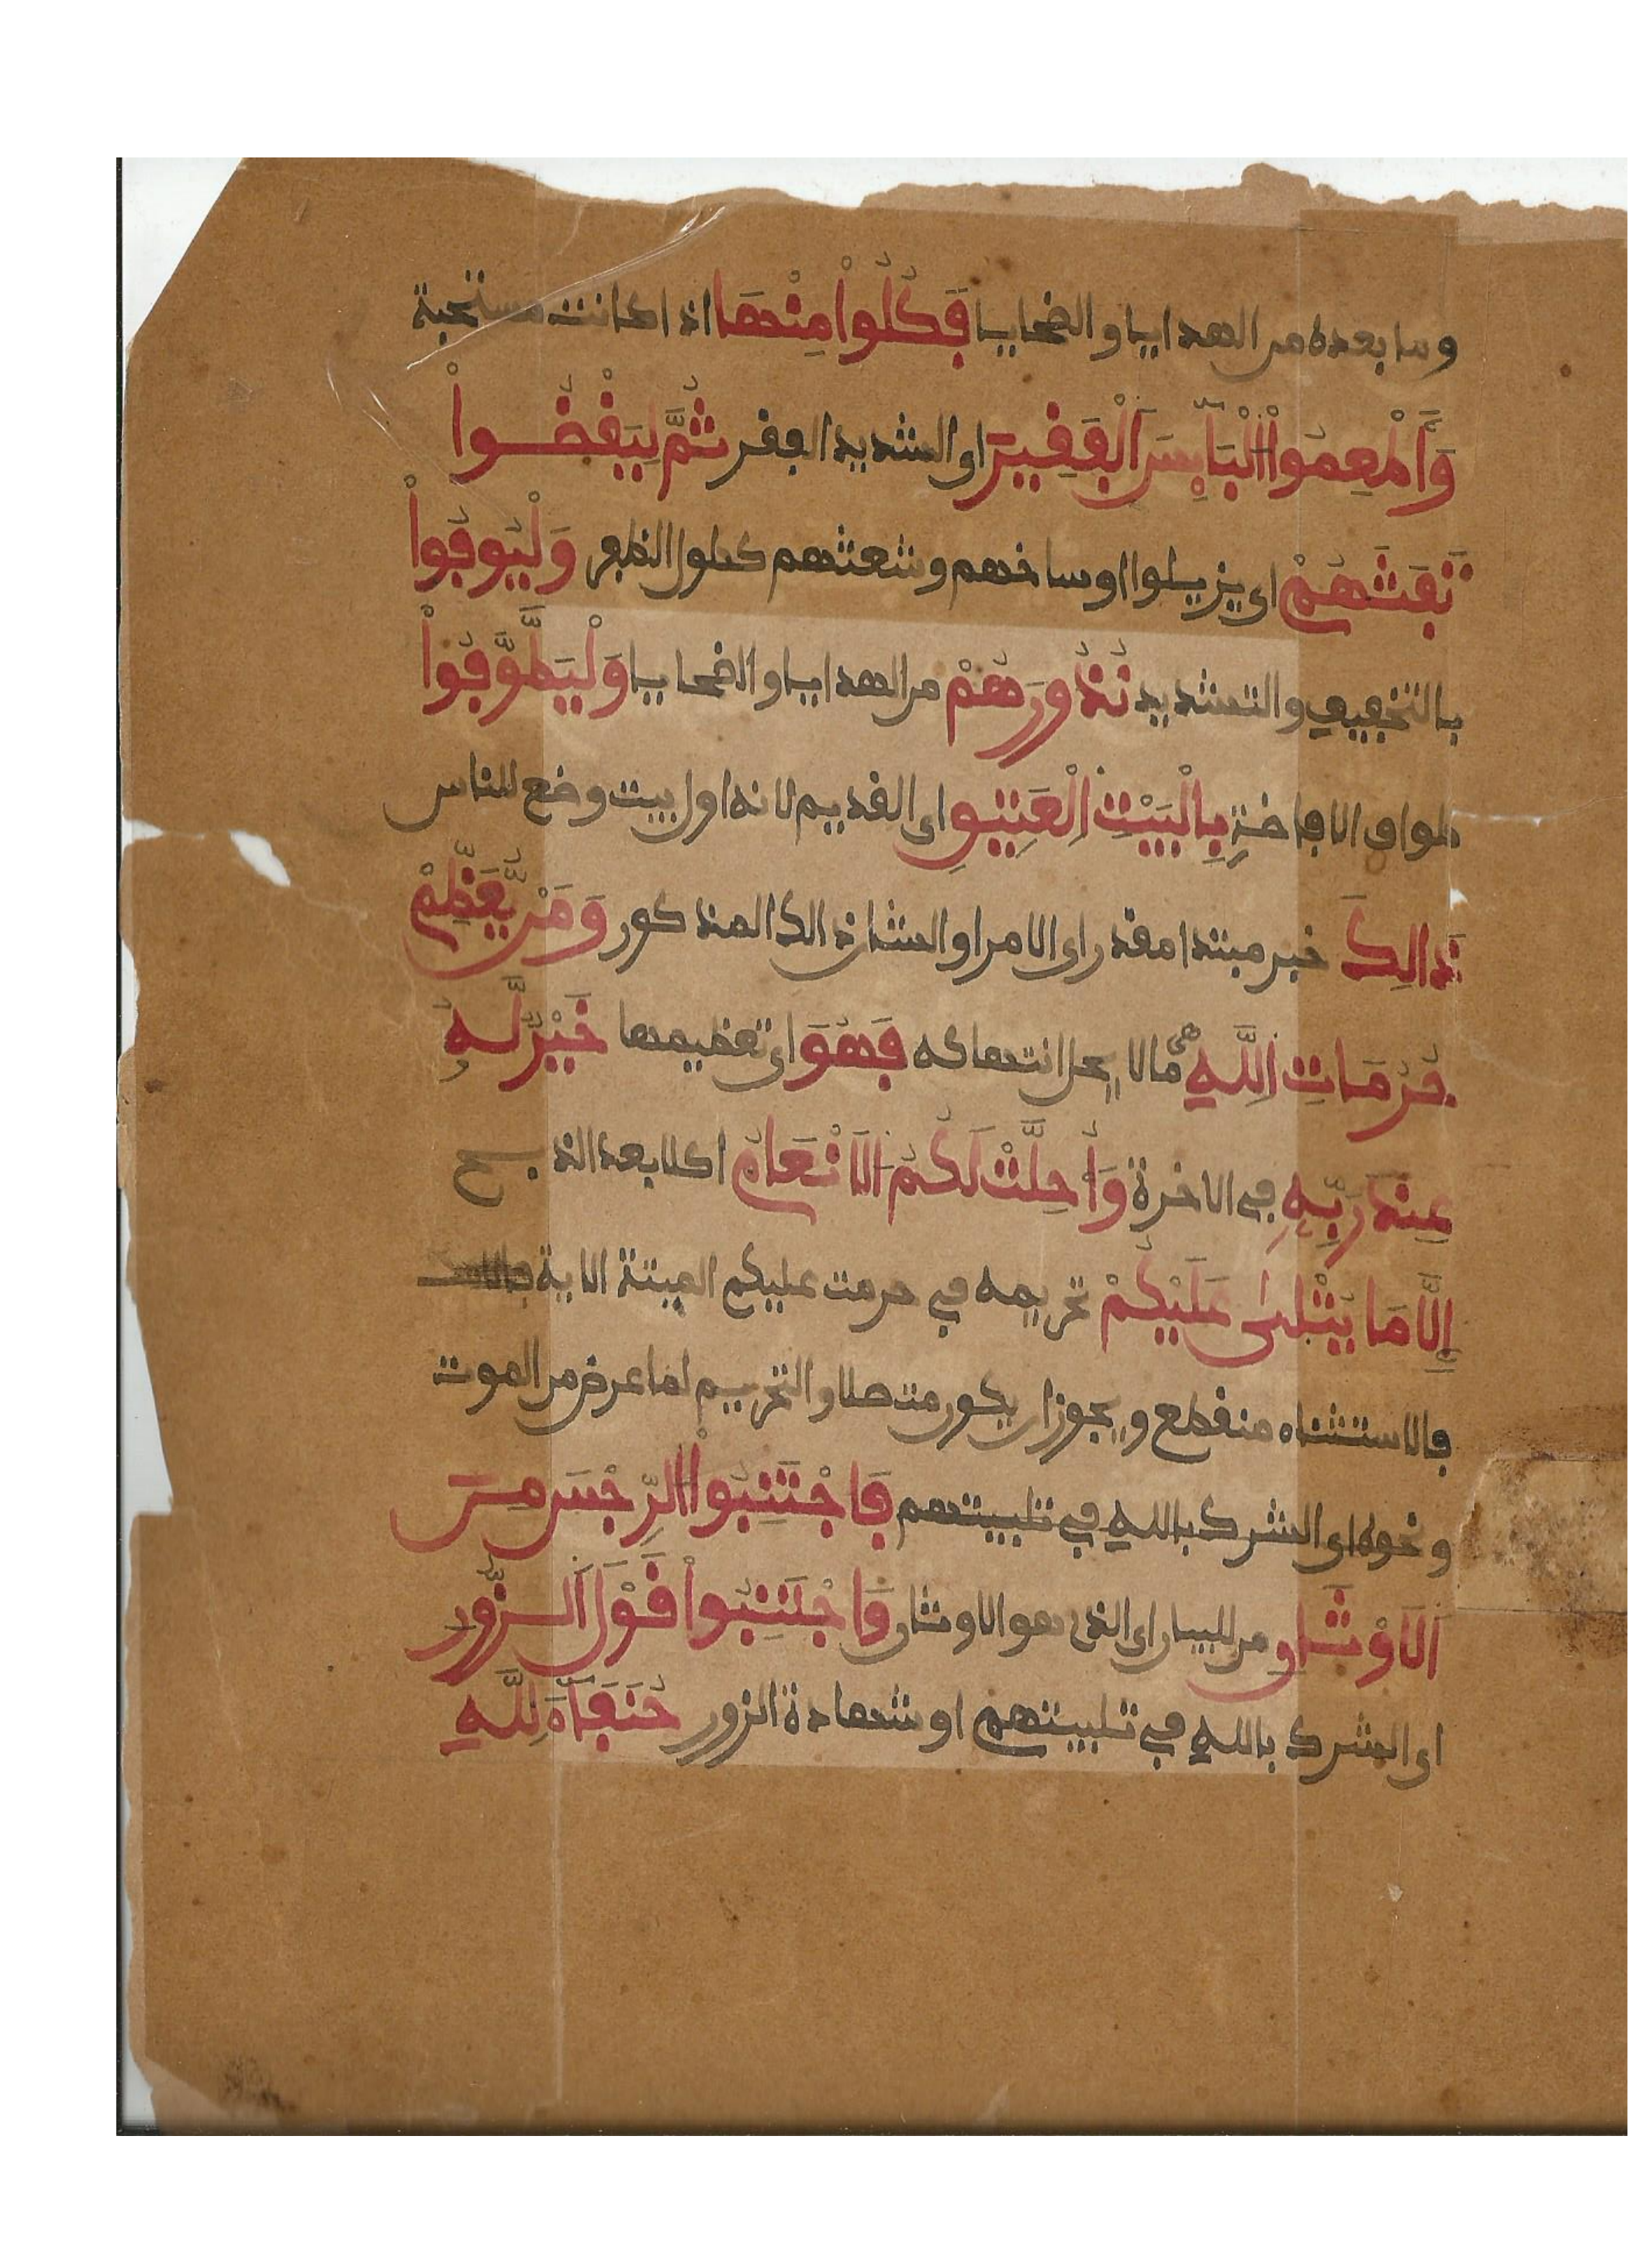 وما بعده من الهدايا والضحايا فَكُلُواْ مِنْهَا اذا كانت مستحبة
وَأَطْعِمُواْ اُلْبَآئِسَ اَلْفَقِيرَ اى الشديد الفقر ثُمَّ لِيَقْضُواْ
تَفَثَهُمْ اى يزيلوا اوساخهم وشعثهم كطول الظفر وَلْيُوفُواْ
بالتخفيف والتشديد نُذُورَهُمْ من الهدايا والضحايا وَلْيَطَّوَّفُواْ
طواف الافاضة بِالْبَيْتِ اِلْعَتِيقِ اى القديم لانه اول بيت وضع للناس
ذَالِكَ خبر مبتدا مقدر اى الامر او الشان ذالك المذكور وَمَنْ يُّعَظِّمْ
حُرُمَاتِ اِللَّهِ هى مالا يحل انتهاكه فَهُوَ اى تعظيمها خَيْرٌ لَّهُ
عِندَ رَبِّهِ في الاخرة وَأُحِلَّتْ لَكُمُ اَلَانْعَامُ اكلا بعد الذبح
إِلَّا مَا يُتْلَىٰ عَلَيْكُمْ تحريمه في حرمت عليكم الميتة الاية
فالاستثناء منقطع ويجوز ان يكون متصلا والتحريم لما عرض من الموت
ونحوه اى الشرك بالله في تلبيتهم فَاجْتَنِبُواْ اُلرِّجْسَ مِنَ
اَلَاوْثَانِ من للبيان اى الذى هو الاوثان وَاجْتَنِبُواْ قَوْلَ اَلزُّورِ
اى الشرك بالله في تلبيتهم او شهادة الزور حُنَفَآءَ لِلَّهِ